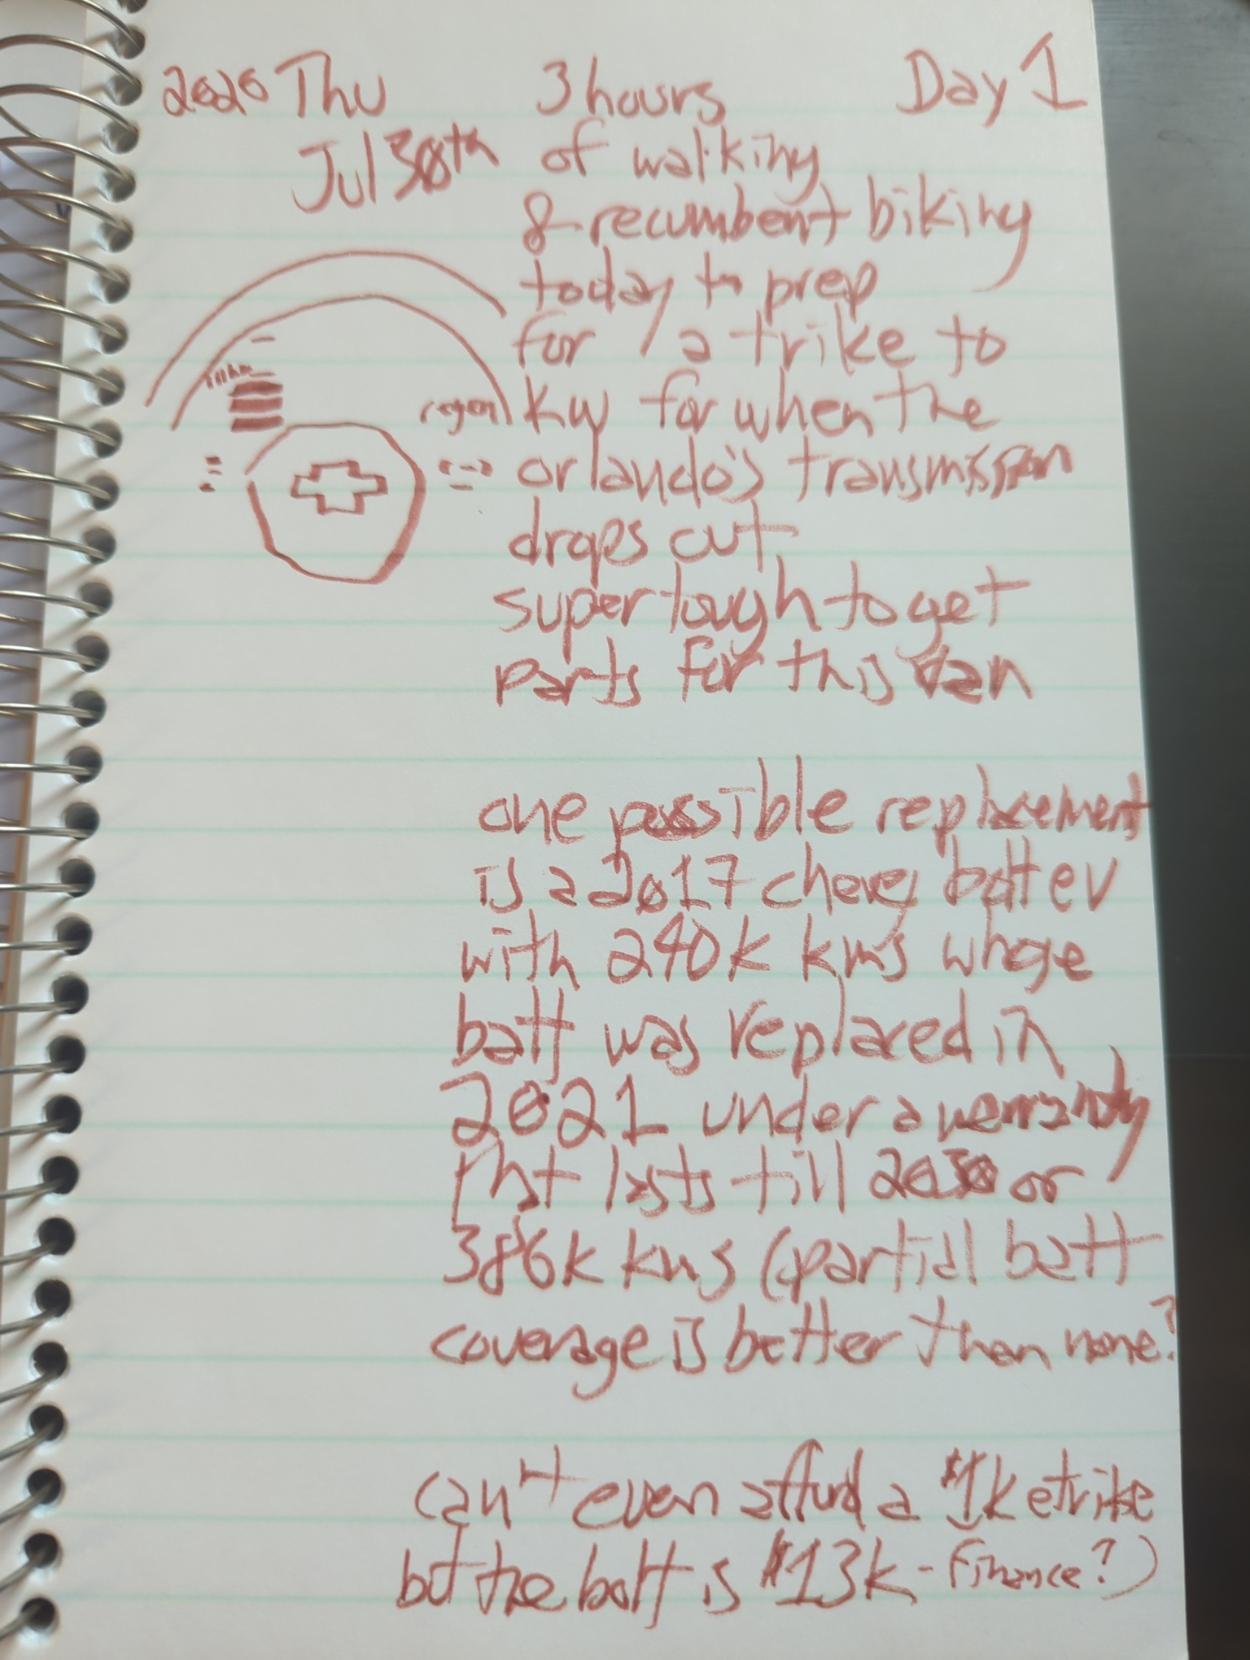 2020 Thu 3 hours Day 1
Jul 30th of walking
& recumbent biking
today to prep
for a trike to
regen KW for when the
orlando's transmission
drops out.
super tough to get
parts for this van
one possible replacement
is a 2017 chevy bolt ev
with 240k kms whose
batt was replaced in
2021 under a warranty
that lasts till 2030 or
386k kms (partial batt
coverage is better than none?
can't even afford a $1k etrike
but the bolt is $13k - finance?)